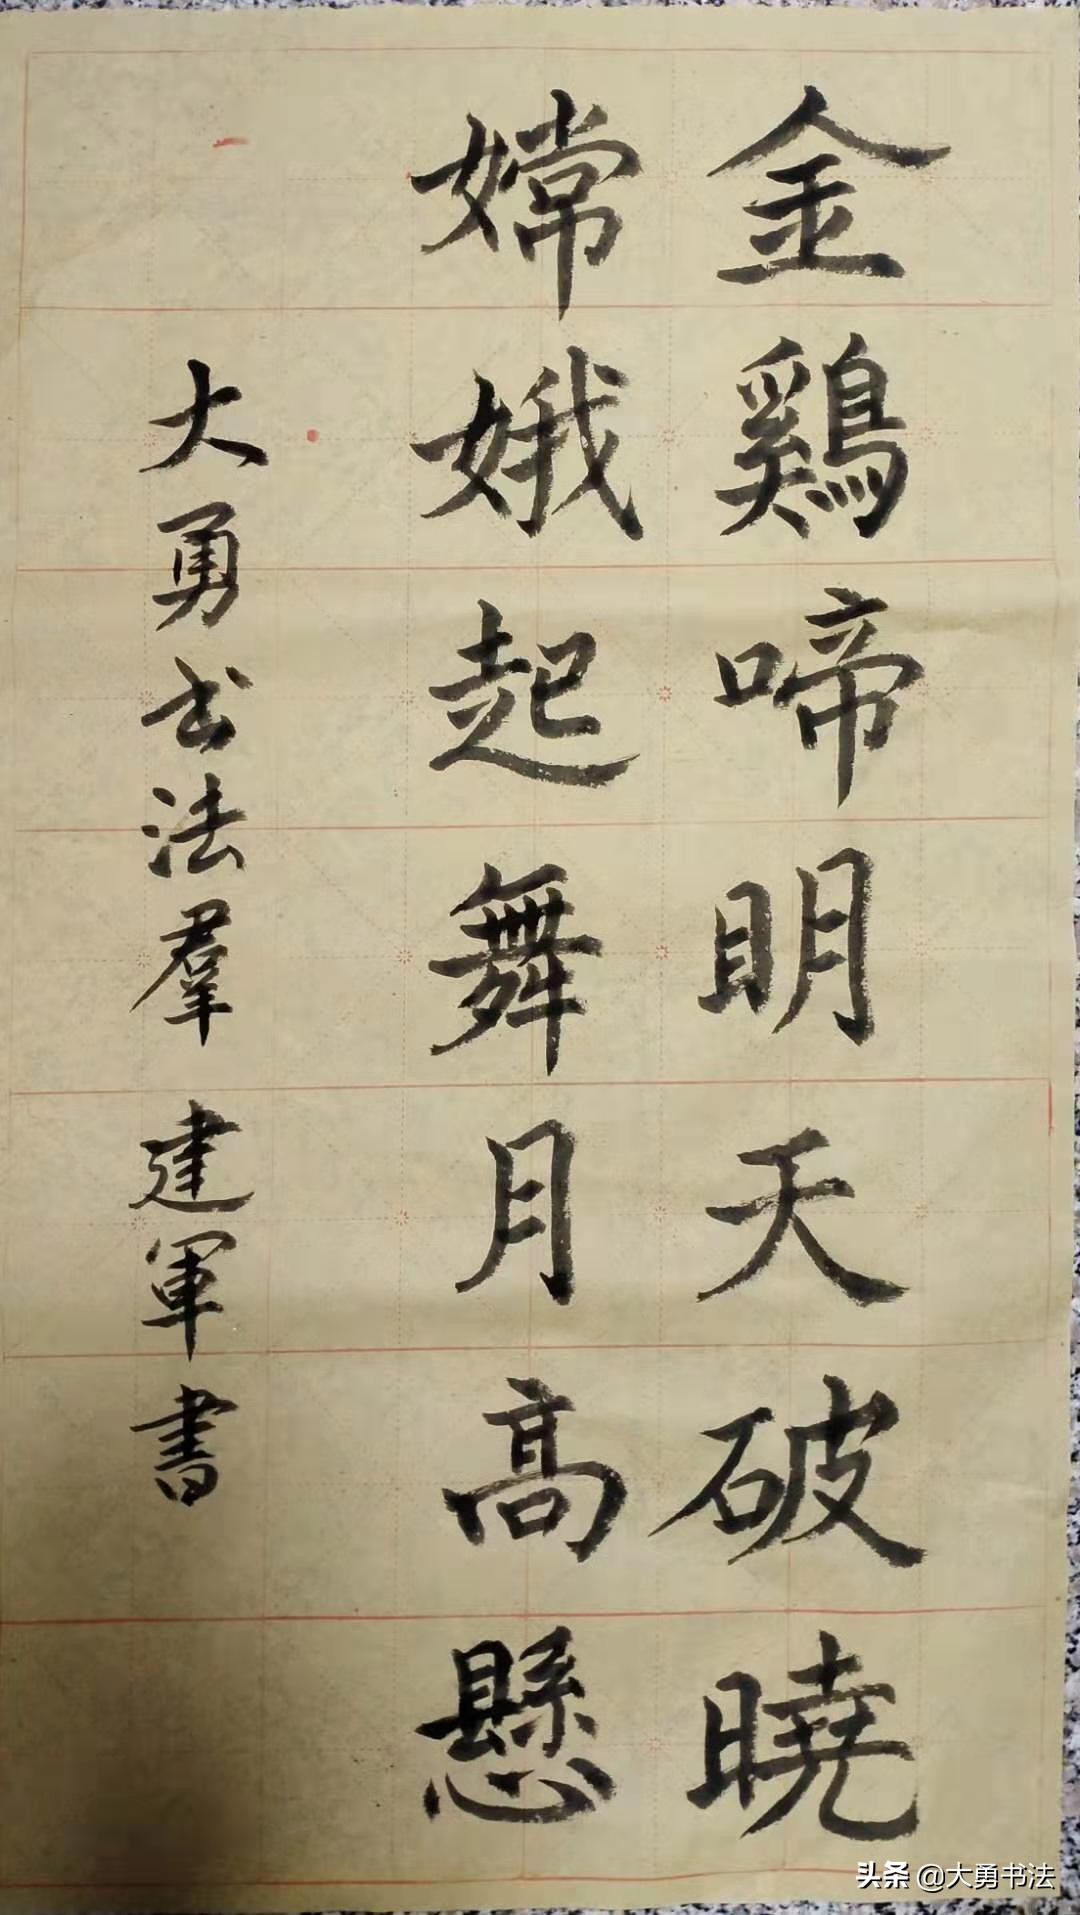 金鷄啼明天破曉
嫦娥起舞月高懸
大勇书法羣 建軍書
头条 @大勇书法